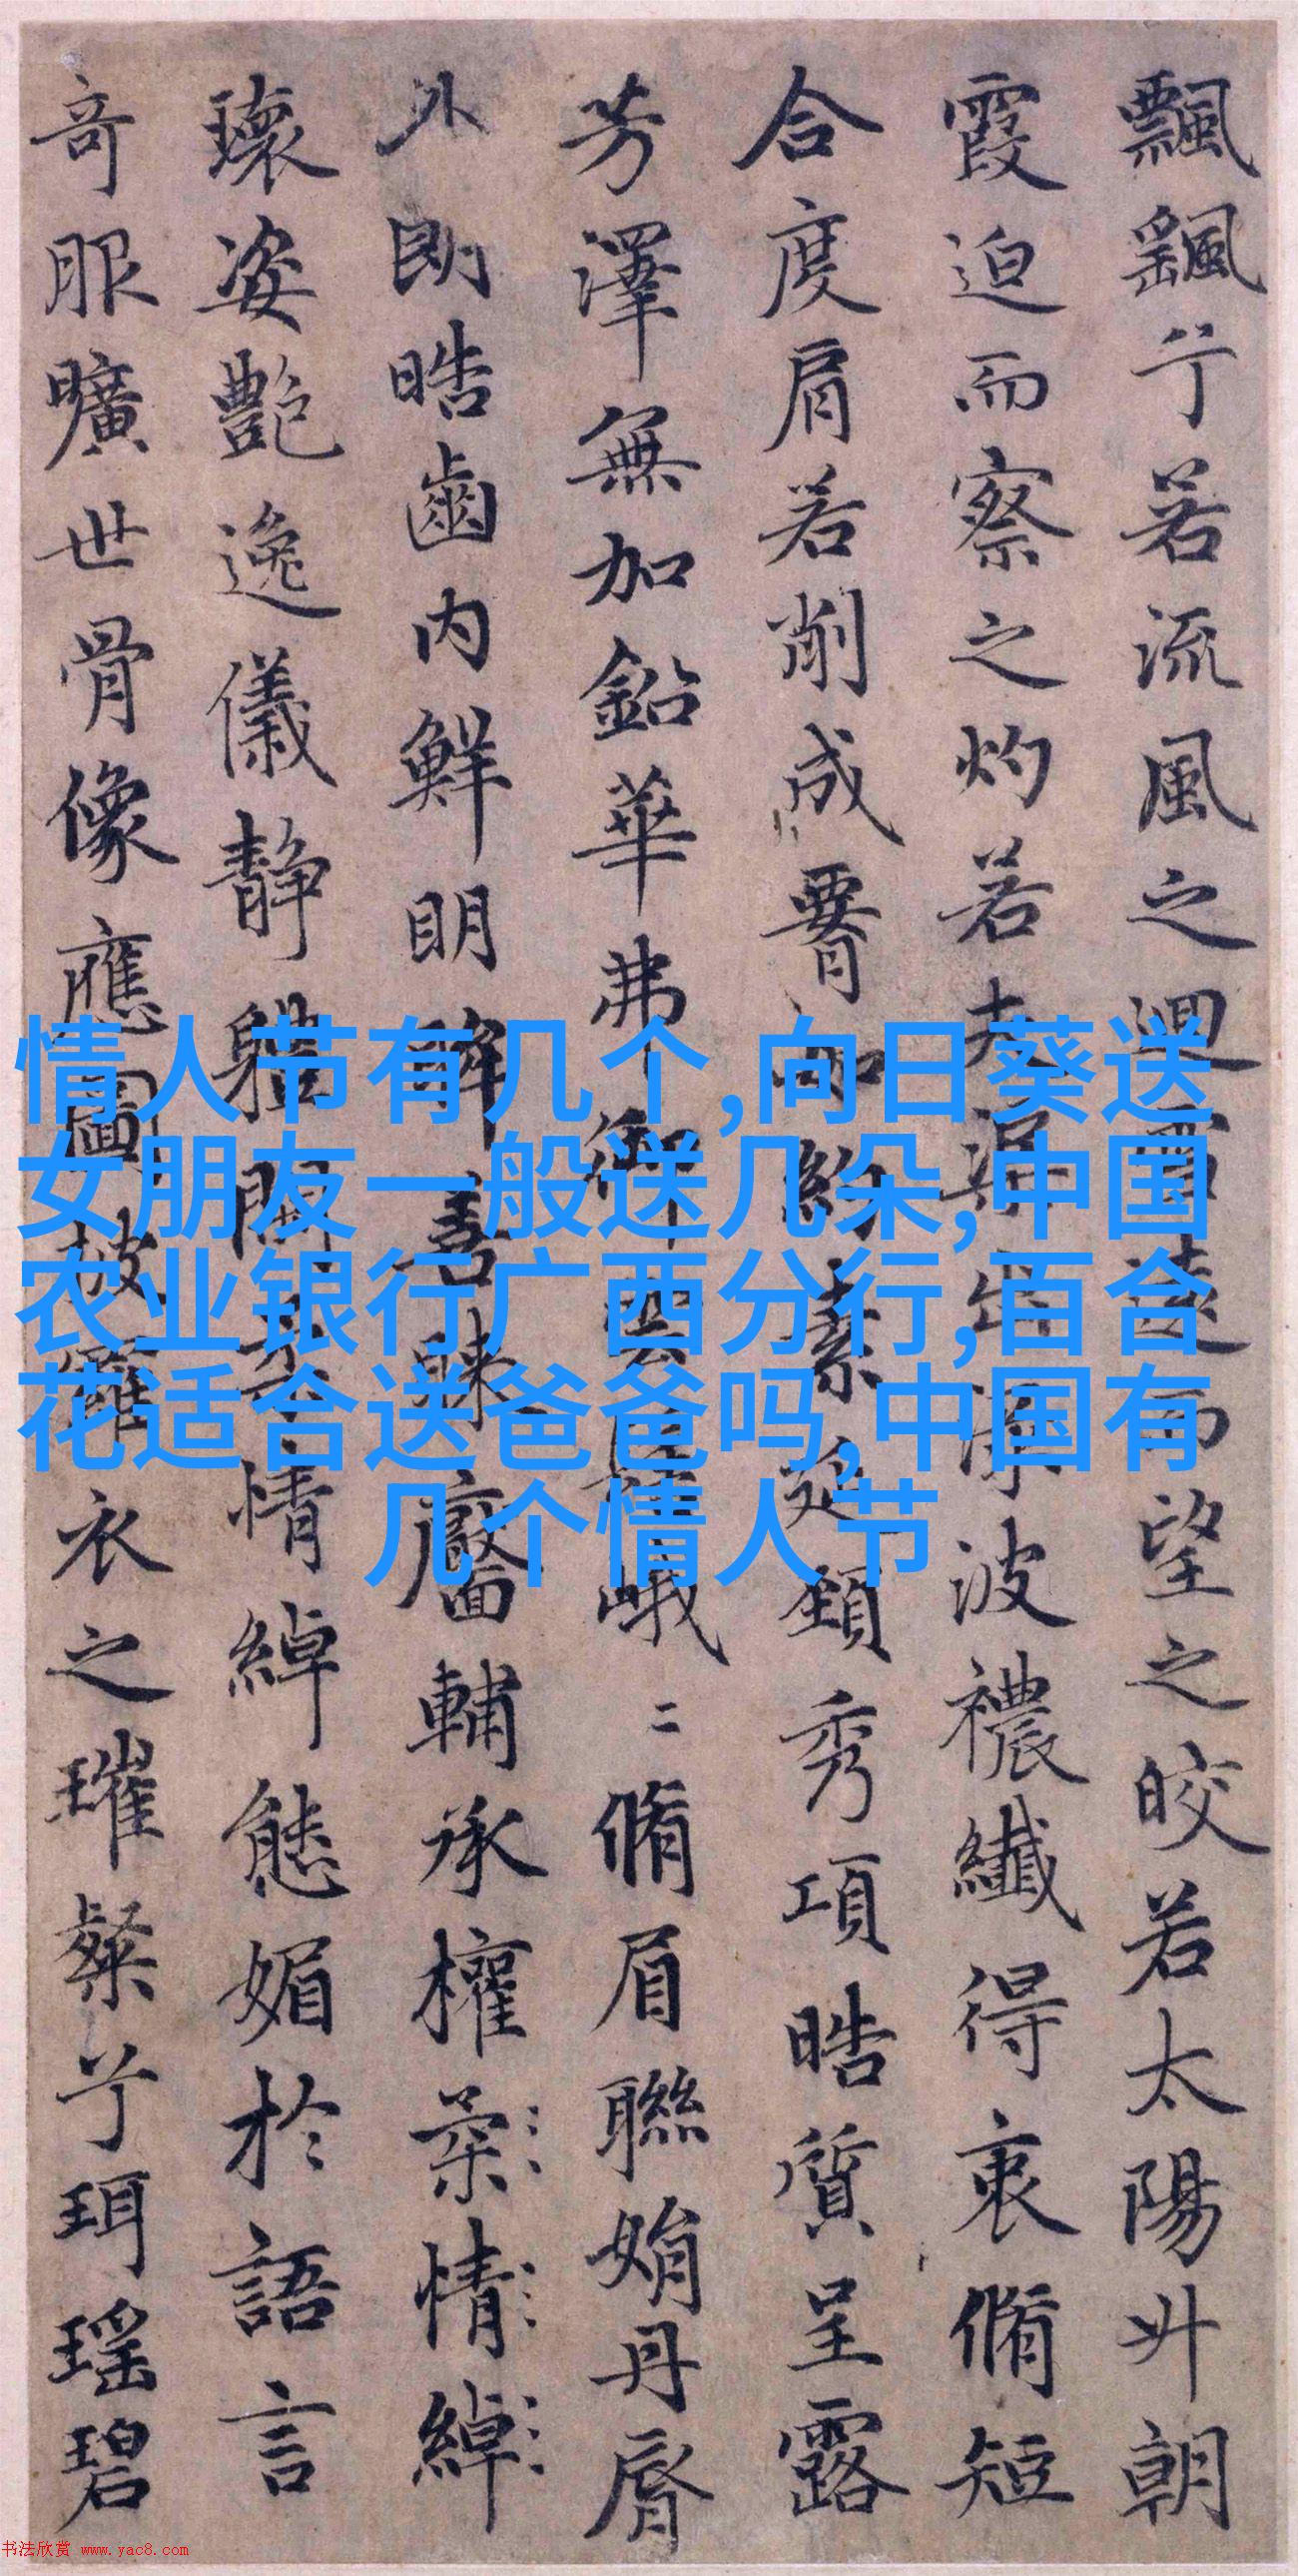 飄飖兮若流風之迴雪遠而望之皎若太陽升朝
霞迫而察之灼若夫渠出淥波襛纖得衷脩短
合度肩若削成䙅如約素延頸秀項皓質呈露
芳澤無加鉛華弗御雲髻峩二脩眉聯娟丹脣
外朗皓齒內鮮明眸善睞靨輔承權柔情綽
瓌姿艷逸儀静體閑柔情綽態媚於語言
奇服曠世骨像應圖披羅衣之璀粲兮珥瑶碧
情人节有几个,向日葵送
女朋友一般送几朵,中国
农业银行广西分行,百合
花适合送爸爸吗,中国有
几个情人节
书法欣赏 www.yac8.com